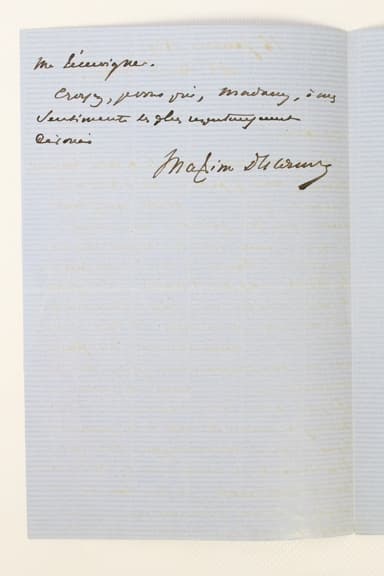 me témoigner.
Croyez, je vous prie, Madame, à mes
sentiments les plus respectueusement
dévoués
Maxime Du Camp